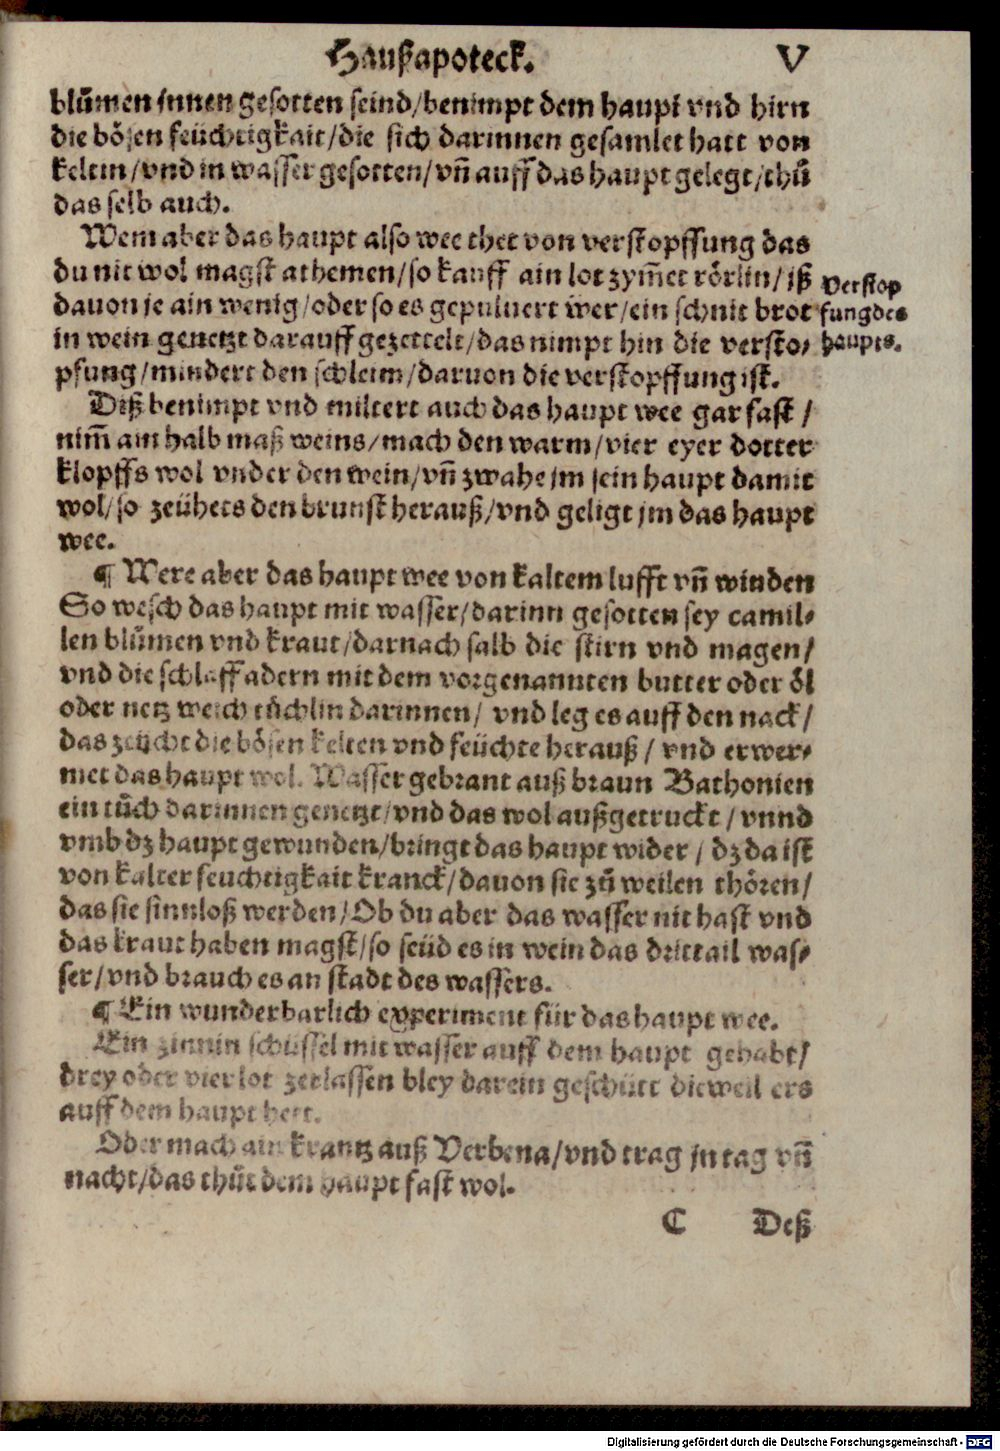 Haußapoteck. V
blůmen innen gesotten seind/benimpt dem haupt vnd hirn
die bösen feüchtigkait/die sich darinnen gesamlet hatt von
keltin/vnd in wasser gesotten/vñ auff das haupt gelegt/thů
das selb auch.
Wem aber das haupt also wee thet von verstopffung das
du nit wol magst athemen/so kauff ain lot zym̃et rörlin/iß
dauon je ain wenig/oder so es gepuluert wer/ein schnit brot
in wein genetzt darauff gezettelt/das nimpt hin die versto⸗
pfung/mindert den schleim/daruon die verstopffung ist.
Verstop
fung des
haupts.
Diß benimpt vnd miltert auch das haupt wee gar fast/
nim̃ ain halb maß weins/mach den warm/vier eyer dotter
klopffs wol vnder den wein/vñ zwahe jm sein haupt damit
wol/so zeühets den brunst herauß/vnd geligt jm das haupt
wee.
¶ Were aber das haupt wee von kaltem lufft vñ winden
So wesch das haupt mit wasser/darinn gesotten sey camil⸗
len blůmen vnd kraut/darnach salb die stirn vnd magen/
vnd die schlaff adern mit dem vorgenannten butter oder öl
oder netz weich tüchlin darinnen/ vnd leg es auff den nack/
das zeücht die bösen kelten vnd feüchte herauß/ vnd erwer⸗
met das haupt wol. Wasser gebrant auß braun Bathonien
ein tůch darinnen genetzt/vnd das wol außgetruckt/vnnd
vmb dz haupt gewunden/bringt das haupt wider/ dz da ist
von kalter feuchtigkait kranck/dauon sie zů weilen thören/
das sie sinnloß werden/Ob du aber das wasser nit hast vnd
das kraut haben magst/so seüd es in wein das drittail was⸗
ser/vnd brauch es an stadt des wassers.
¶ Ein wunderbarlich experiment für das haupt wee.
Ein zinnin schüssel mit wasser auff dem haupt gehabt/
drey oder vier lot zerlassen bley darein geschütt dieweil ers
auff dem haupt hett.
Oder mach ain krantz auß Verbena/vnd trag jn tag vñ
nacht/das thůt dem haupt fast wol.
C Deß
Digitalisierung gefördert durch die Deutsche Forschungsgemeinschaft - DFG